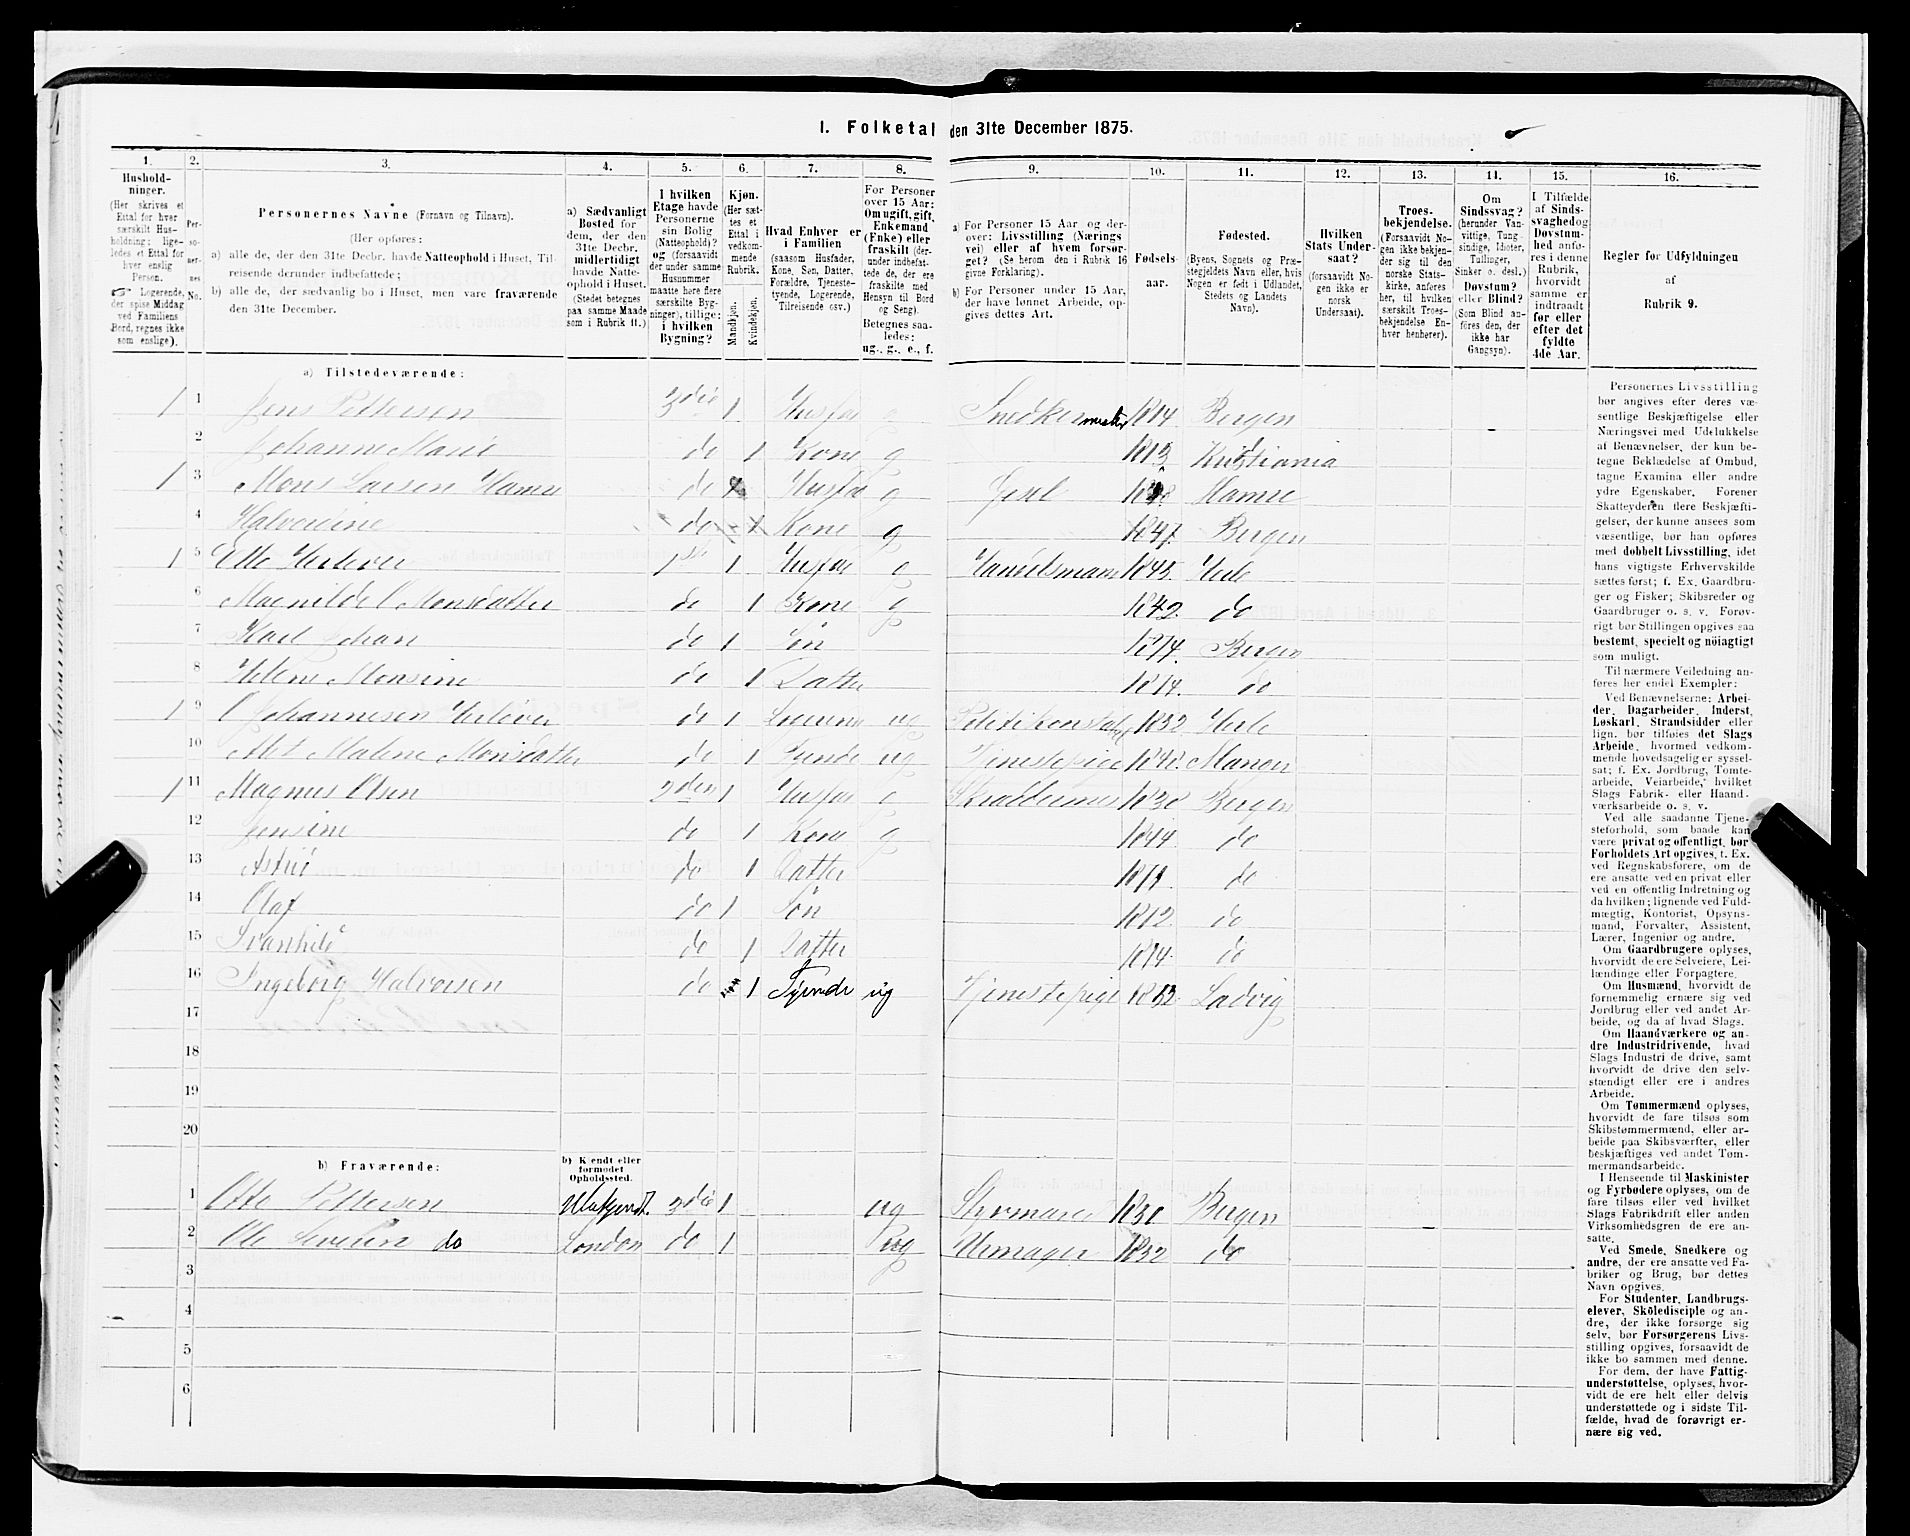 I. Folketal den 31te December 1875.
1. 2. 3. 4. 5. 6. 7. 8. 9. 10. 11. 12. 13. 14. 15. 16.
Hushold-
ninger.
(Her skrives et
Ettal for hver
særskilt Hus-
holdning; lige-
ledes et Ettal for
hver enslig
Person.
☞ Logerende,
der spise Middag
ved Familiens
Bord, regnes ikke
som enslige).
Per-
so-
ner-
nes
No.
Personernes Navne (Fornavn og Tilnavn).
(Her opføres:
a) alle de, der den 31te Decbr. havde Natteophold i Huset, Til-
reisende derunder indbefattede;
b) alle de, der sædvanlig bo i Huset, men vare fraværende
den 31te December.
a) Sædvanligt
Bosted for
dem, der den
31te Decbr.
midlertidigt
havde Natte-
ophold i Huset.
(Stedet betegnes
paa samme Maade
som i Rubrik 11.)
I hvilken
Etage havde
Personerne
sin Bolig
(Natteophold)?
og (forsaavidt
der under samme
Husnummer
maatte høre flere
særskilte Byg-
ninger), tillige:
i hvilken
Bygning?
Kjøn.
(Her sæt-
tes et
Ettal i
vedkom-
mende
Rubrik.
Mandkjøn.
Kvindekjøn.
Hvad Enhver er
i Familien
(saasom Husfader,
Kone, Søn, Datter,
Forældre, Tjeneste-
tyende, Logerende,
Tilreisende osv.)
For Personer
over 15 Aar:
Om ugift, gift,
Enkemand
(Enke) eller
fraskilt (der-
under indbefat-
tede de, der ere
fraskilte med
Hensyn til Bord
og Seng).
Betegnes saa-
ledes:
ug., g., e., f.
a) For Personer 15 Aar og der-
over: Livsstilling (Nærings
vei) eller af hvem forsør-
get? (Se herom den i Rubrik 16
givne Forklaring).
b) For Personer under 15 Aar,
der have lønnet Arbeide, op-
gives dettes Art.
Fødsels-
aar.
Fødested.
(Byens, Sognets og Præ-
stegjeldets Navn eller, hvis
Nogen er født i Udlandet,
Stedets og Landets
Navn).
Hvilken
Stats Under-
saat?
(forsaavidt No-
gen ikke er
norsk
Undersaat).
Troes-
bekjendelse.
(Forsaavidt No-
gen ikke bekjen-
der sig til den
norske Stats-
kirke, anføres
her, til hvilken
særskilt Troes-
bekjendelse En-
hver henhører).
Om
Sindssvag?
(herunder Van-
vittige, Tung-
sindige, Idioter,
Tullinger,
Sinker o. desl.)
Døvstum?
eller Blind?
(Som Blind an-
føres den, der
ikke har
Gangsyn).
I Tilfælde
af Sinds-
svaghed og
Døvstum-
hed anfø-
res i denne
Rubrik,
hvorvidt
samme er
indtraadt
før eller
efter det
fyldte
4de Aar.
Regler for Udfyldningen
af
Rubrik 9.
a) Tilstedeværende:
1 1 Jens Pettersen 3die 1 Husfar g Snedkermester 1814. Bergen
2 Johanne Marie do 1 Kone g 1813 Kristiania
1 3 Mons Larsen Hamre do Husfar g Hamre
4 do 1 Kone g 1847. Bergen
1 5 Herlever 1ste 1 Husfar g Handelsmand 1845. Herle
6 Monsdatter do 1 Kone g 1842. do
7 Karl Johan do 1 Søn 1874. Bergen
8 Helene Monsine do 1 Datter 1874. do
1 9 O Johannesen Herlever do 1 Logerende ug Politikonstabel 1852 Herle
10 Met Malene Monsdatter do 1 Tyende ug Tjenestepige Manger
1 11 Magnus Olsen 2den 1 Husfar g 1838 Bergen
12 Jensine do 1 Kone g 1844 do
13 Astri do 1 Datter 1871 do
14 Olaf do 1 Søn 1872. do
15 Svanhild do 1 Datter 1874. do
16 Ingeborg Halvorsen do 1 Tyende ug Tjenestepige 1852 Ladvig
17
18
19
20
b) Fraværende:
b) Kjendt eller
formodet
Opholdssted.
1 Otto Pettersen Ubekjendt. 3die 1 ug Styrmand Bergen
2 Ole Severin do London do 1 ug Urmager 1852 do
3
4
5
6
Personernes Livsstilling
bør angives efter deres væ-
sentlige Beskjæftigelse eller
Næringsvei med Udelukkelse
af Benævnelser, der kun be-
tegne Beklædelse af Ombud,
tagne Examina eller andre
ydre Egenskaber. Forener
Skatteyderen flere Beskjæfti-
gelser, der kunne ansees som
væsentlige, bør han opføres
med dobbelt Livsstilling, idet
hans vigtigste Erhvervskilde
sættes først; f. Ex. Gaardbru-
ger og Fisker; Skibsreder og
Gaardbruger o. s. v. Forøv-
rigt bør Stillingen opgives saa
bestemt, specielt og nøiagtigt
som muligt.
Til nærmere Veiledning an-
føres her endel Exempler:
Ved Benævnelserne: Arbei-
der, Dagarbeider, Inderst,
Løskarl, Strandsidder eller
lign. bør tilføies det Slags
Arbeide, hvormed vedkom-
mende hovedsagelig er syssel-
sat; f. Ex. Jordbrug, Tomte-
arbeide, Veiarbeide, hvilket
Slags Fabrik- eller Haand-
værksarbeide o. s. v.
Ved alle saadanne Tjene-
steforhold, som baade kan
være privat og offentligt, bør
Forholdets Art opgives, t. Ex.
ved Regnskabsførere, om de
ere ansatte ved en privat eller
ved en offentlig Indretning og
da hvilken; lignende ved Fuld-
mægtig, Kontorist, Opsyns-
mand, Forvalter, Assistent,
Lærer, Ingeniør og andre.
Om Gaardbrugere oplyses,
hvorvidt de ere Selveiere, Lei-
lændinge eller Forpagtere.
Om Husmænd, hvorvidt de
fornemmelig ernære sig ved
Jordbrug eller ved andet Ar-
beide, og da af hvad Slags.
Om Haandværkere og an-
dre Industridrivende, hvad
Slags Industri de drive, samt
hvorvidt de drive den selv-
stændigt eller ere i andres
Arbeide.
Om Tømmermænd oplyses,
hvorvidt de fare tilsøs som
Skibstømmermænd, eller ar-
beide paa Skibsværfter, eller
beskjæftiges ved andet Tøm-
mermandsarbeide.
I Henseende til Maskinister
og Fyrbødere oplyses, om de
fare tilsøs eller ved hvilket
Slags Fabrikdrift eller anden
Virksomhedsgren de ere an-
satte.
Ved Smede, Snedkere og
andre, der ere ansatte ved Fa-
briker og Brug, bør dettes
Navn opgives.
For Studenter, Landbrugs-
elever, Skoledisciple og an-
dre, der ikke forsørge sig
selv, bør Forsørgerens Livs-
stilling opgives, forsaavidt de
ikke bo sammen med denne.
For dem, der have Fattig-
understøttelse, oplyses, hvor-
vidt de ere helt eller delvis
understøttede og i sidste Til-
fælde, hvad de forøvrigt er-
nære sig ved.